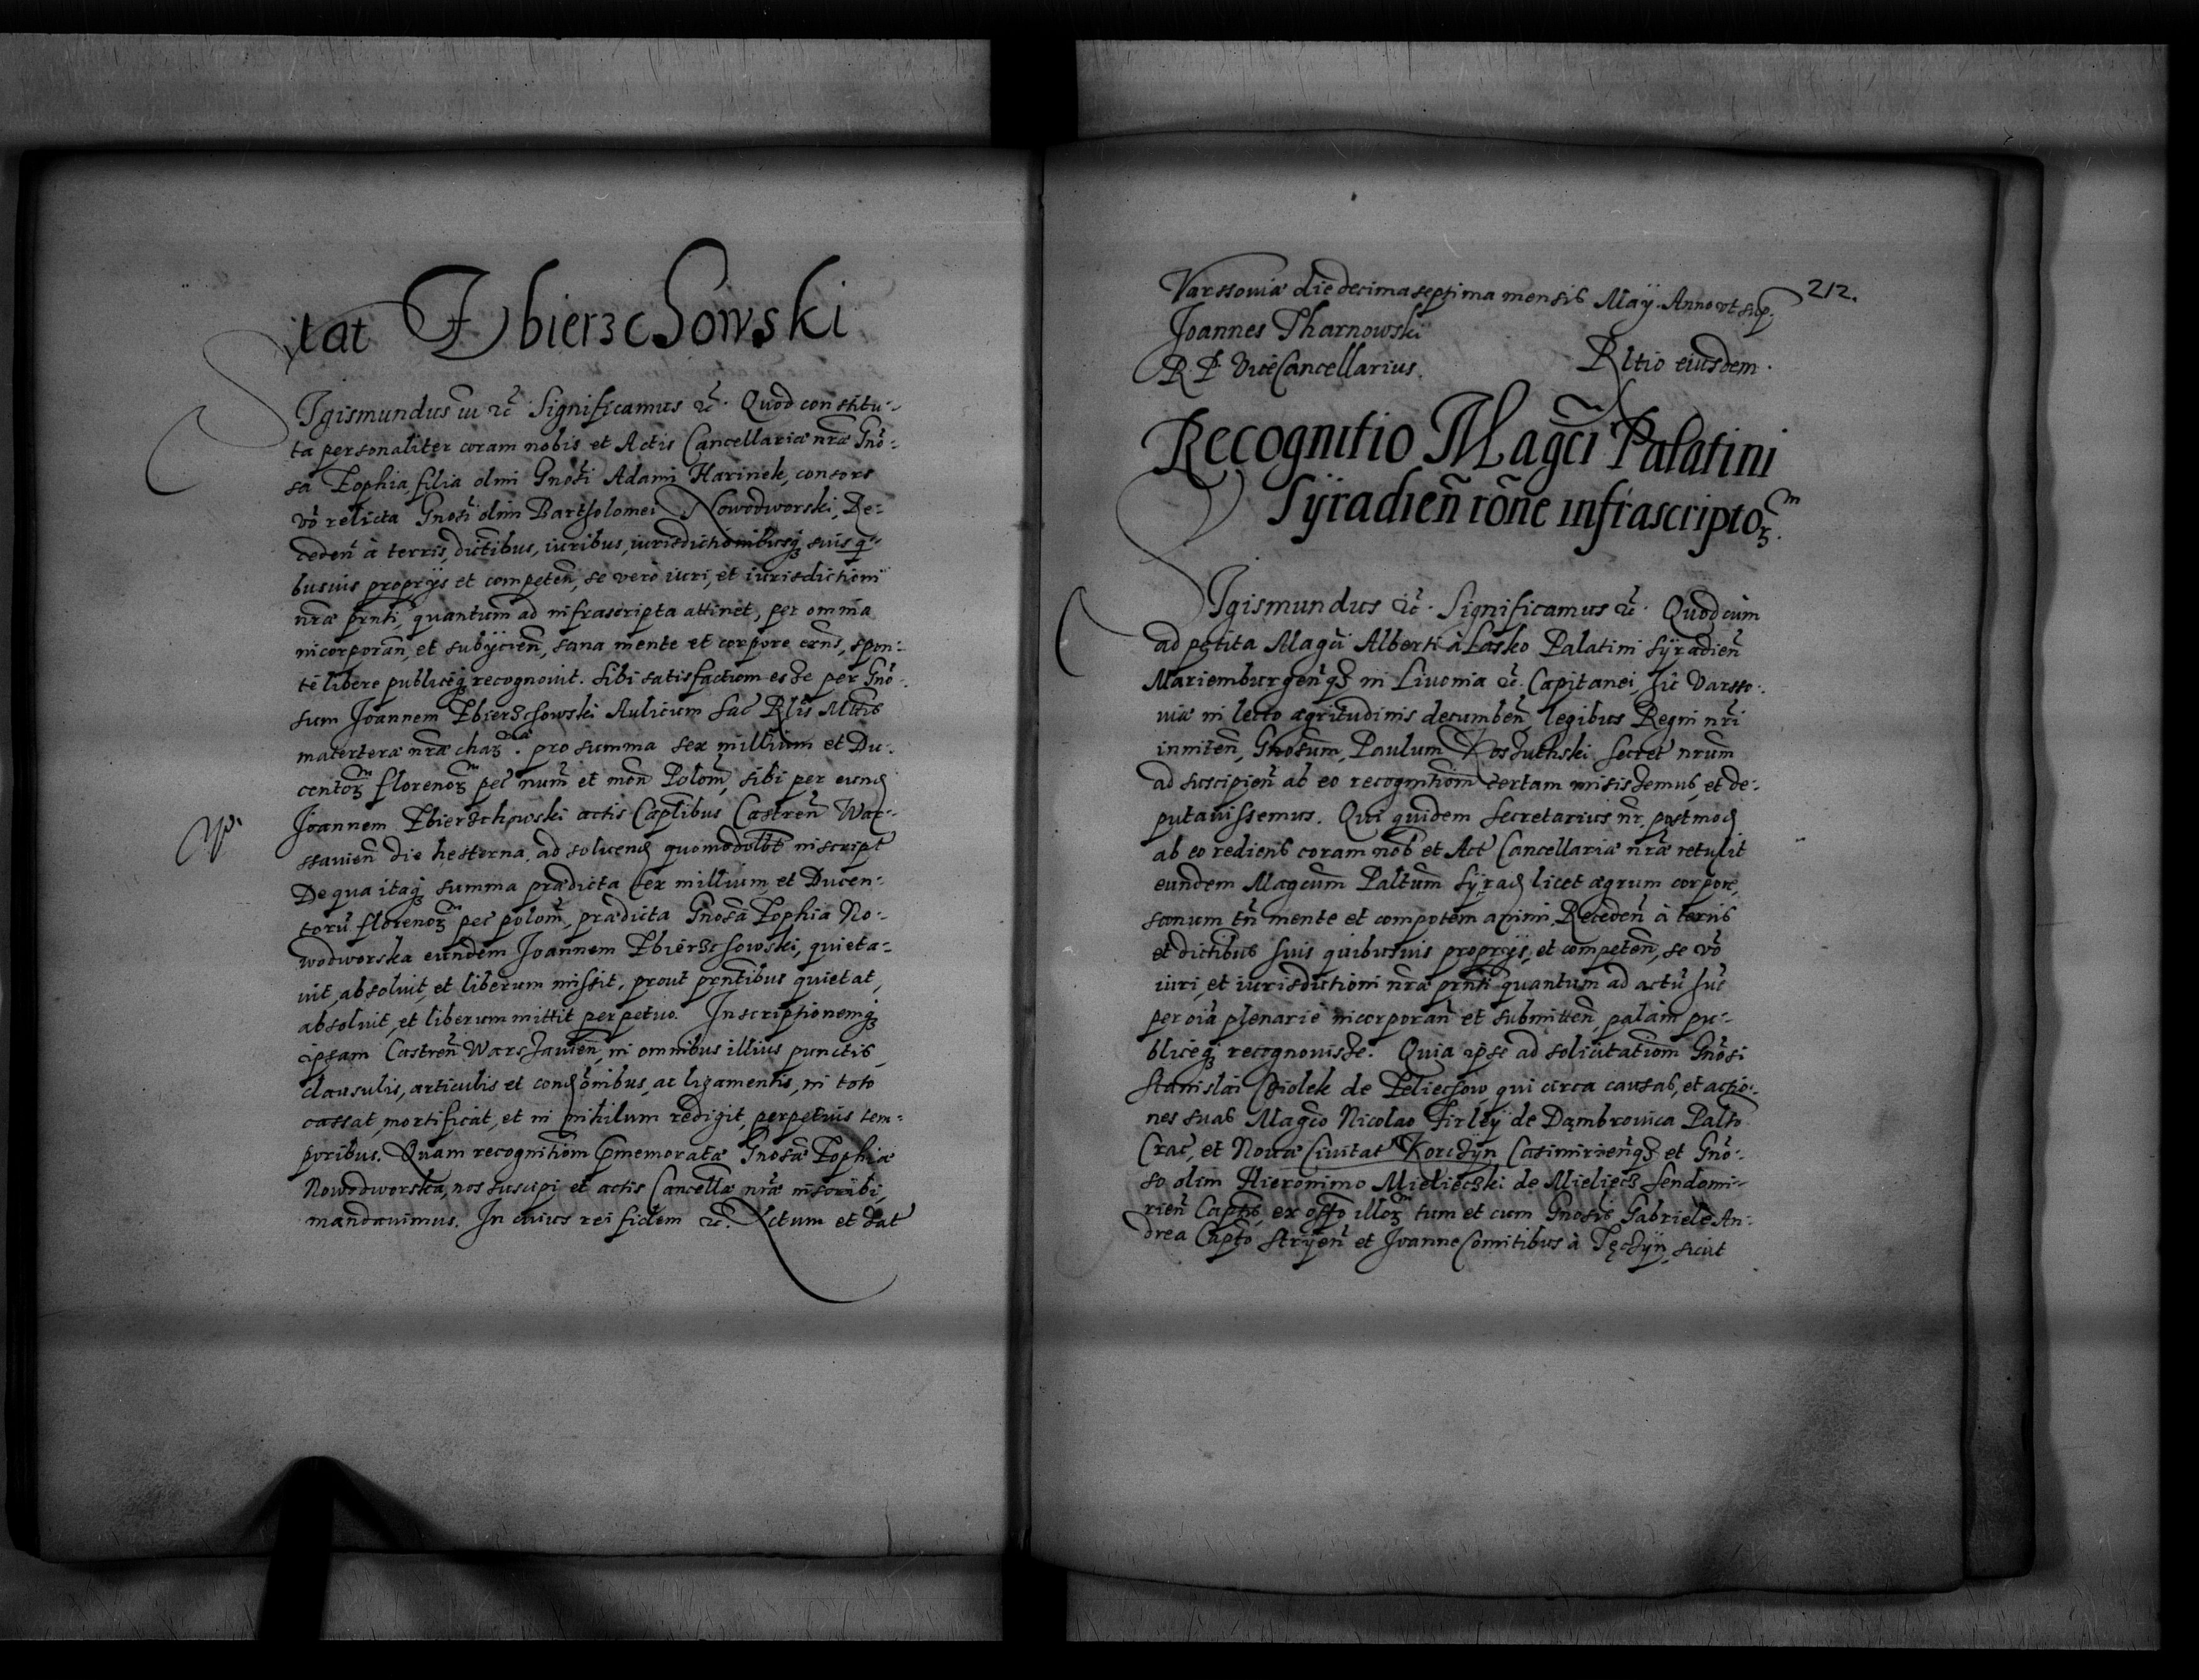 tat Zbierzchowski
Sigismundus iii etc̃ Significamus etc̃. Quod constitu-
ta personaliter coram nobis et Actis Cancellariæ nr̃æ Gnõ-
sa Zophia filia olim Gnosi Adami Harinek, consors
võ relicta Gnosi olim Bartholomei Nowodworski, Re-
ceden̄ à terris, dictibus, iuribus, iurisdictionibusq̃ suis q-
busuis proprijs et competen̄, se verò iuri, et iurisdictioni
nr̃æ prñti, quantum ad infrascripta attinet, per omnia
incorporan̄, et subijcien̄, sana mente et corpore exñs, spon-
tè libere publiceq̃ recognouit. Sibi satisfactiom esse per Gnõ-
sum Joannem Zbierzchowski Aulicum Sac Rlis Mttis
materteræ nr̃æ chaꝝ pro summa sex millium et Du-
centoꝝ florenoꝝ pec num̃ et mon̄ Polom̃, sibi per eund̃
Joannem Zbierzchowski actis Captibus Castren̄ War-
ssauien̄ die hesterna, ad soluend̃ quomodolbt inscript
De qua itaq̃ summa prædicta sex millium et Ducen-
torũ florenoꝝ pec polom̃, prædicta Gnosa Zophia No-
wodworska eundem Joannem Zbierzchowski, quieta-
uit, absoluit, et liberum missit, prout prñtibus quietat,
absoluit, et liberum mittit perpetuo. Inscriptionemq̃
ipsam Castren̄ Warschauien̄, in omnibus illius punctis,
clausulis, articulis et condõnibus, ac ligamentis, in toto
cassat, mortificat, et in nihilum redigit, perpetuis tem-
poribus. Quam recognitiom prmemoratæ Gnosæ Zophiæ
Nowodworska, nos suscipi et actis Cancellæ nr̃æ inscribi,
mandauimus. In cuius rei fidem etc̃. Actum et dat
212.
Varssouiæ die decima septima mensis Maÿ. Anno vt sup.
Joannes Tharnowski
R. P. ViceCancellarius. Rltio eiusdem.
Recognitio Magc̃i Palatini
Sÿradien̄ rõne infrascriptoꝝ.
Sigismundus etc̃. Significamus etc̃. Quod cùm
ad petita Magc̃i Alberti à Lasko Palatini Sÿradien̄
Mariemburgen̄q̃ in Liuonia etc̃. Capitanei, hic Varsso-
uiæ in lecto ægritudinis decumben̄ legibus Regni nr̃i
inniten̄, Gnosum, Paulum Secret nrum
ad suscipien̄ ab eo recognitiom certam misissemus, et de-
putauissemus. Qui quidem Secretarius nr̃, postmod̃
ab eo rediens coram nob et Act Cancellariæ nr̃æ retulit
eundem Magcum Paltum Sÿrad̃ licet ægrum corpore,
sanum tñ mente et compotem animi. Receden̄ à terris
et dictibus suis quibusuis proprijs, et competen̄, se võ
iuri, et iurisdictioni nr̃æ prñti quantum ad actũ huc
per oĩa plenariè incorporan̄ et submitten̄, palàm pu-
bliceq̃ recognouisse. Quia ipse ad solicitatiom Gnõsi
Stanislai Ciolek de Zeliechow qui circa causas, et actio-
nes suas Magc̃o Nicolao Firleÿ de Dąmbrouica Palto
Crac, et Nouæ Ciuitat Korczÿn Casimirien̄q̃ et Gnõ-
so olim Hieronimo Mielieczki de Mieliecz Sendomi-
rien̄ Captis, ex offo illoꝝ tum et cum Gnosis Gabriele An-
drea Capto Strÿen̄ et Joanne Comitibus à Tęczÿn, sicut